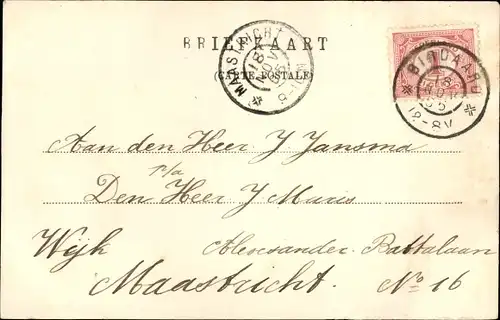 BRIEFKAART
(CARTE POSTALE)
MAASTRICHT
18 NOV 05
8-9
18 NOV 05
12-8V
Aan den Heer J. Jansma
p/a
Den Heer J Muris
Wijk Alexsander. Battalaan
Maastricht. No 16